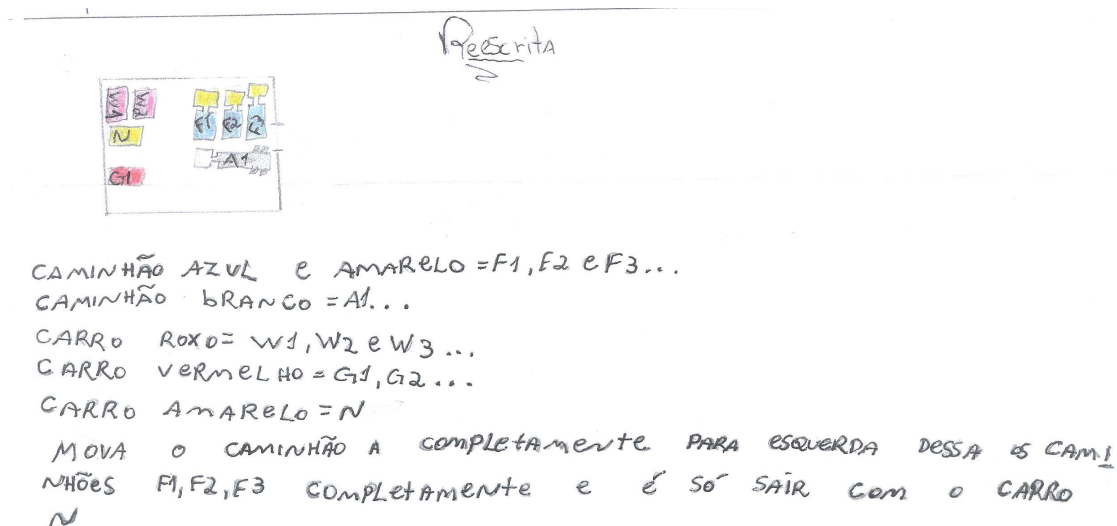 Reescrita
W1 W2 F1 F2 F3
N
A1
G1
CAMINHÃO AZUL e AMARELO = F1, F2 e F3...
CAMINHÃO bRANCO = A1...
CARRO ROXO = W1, W2 e W3...
CARRO VeRmeLHO = G1, G2...
CARRO AmAReLo = N
MOVA o CAMINHÃO A completAmente PARA esQueRDA DessA os CAMI
NHÕes F1, F2, F3 completAmente e é Só SAIR com o CARRO
N